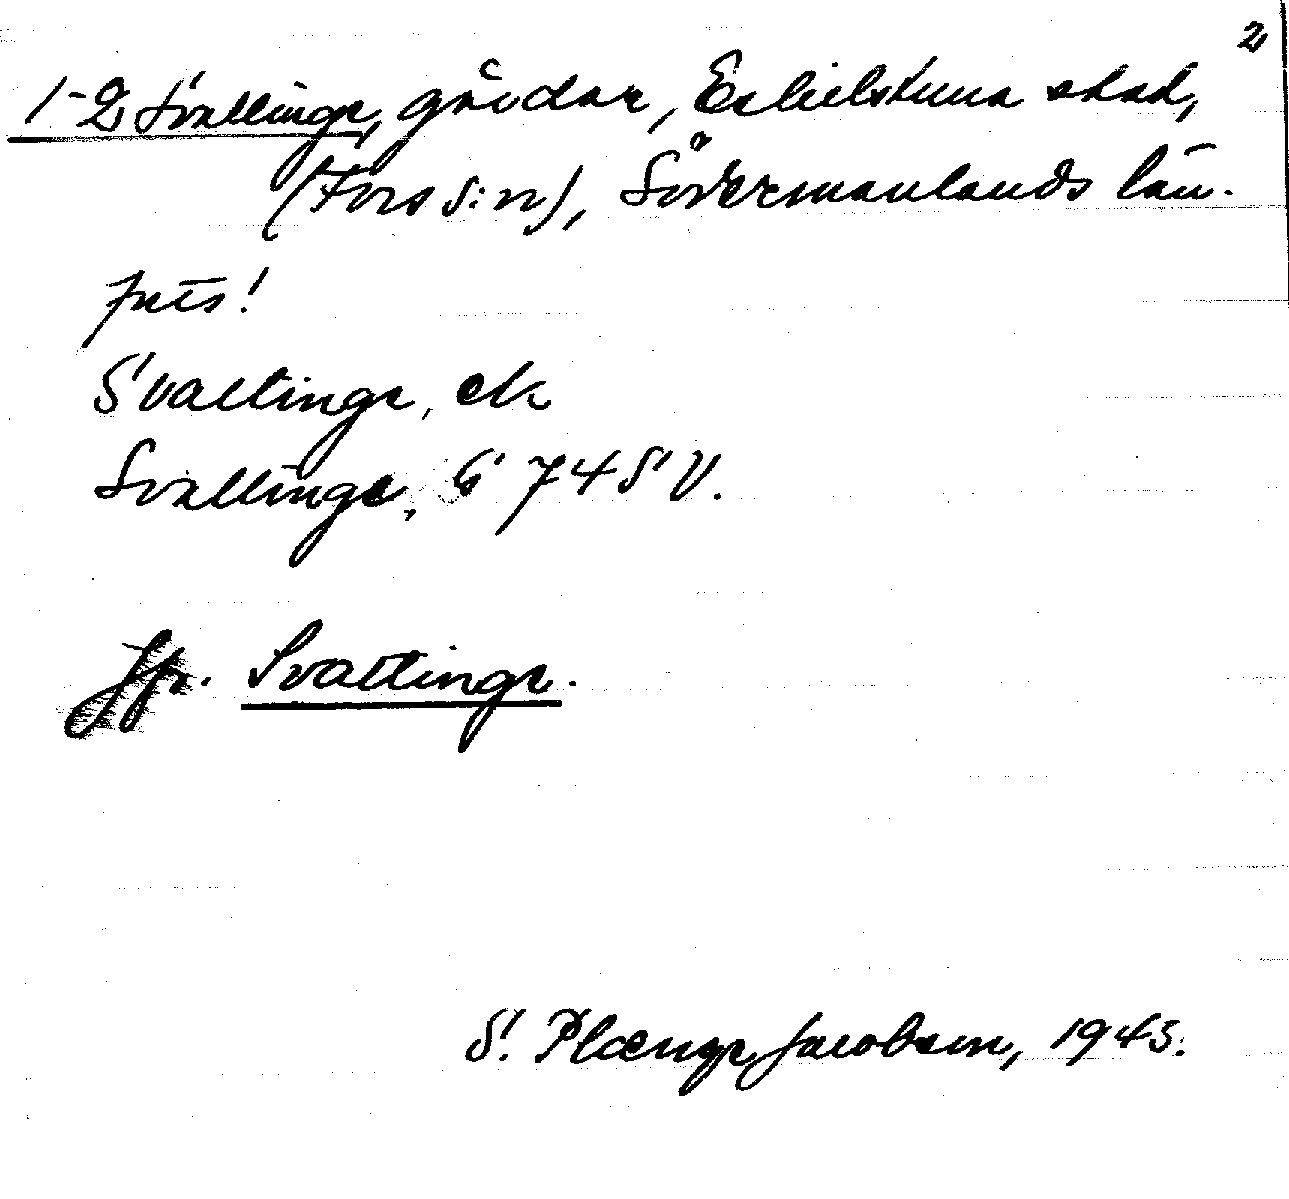 2
1-2 Svallinge, gårdar, Eskilstuna stad,
(Fors s:n), Södermanlands län.
Svaltinge, ek
Svallinge, G 74 SV.
Jfr. Svaltinge.
S. Plænge Jacobson, 1945.